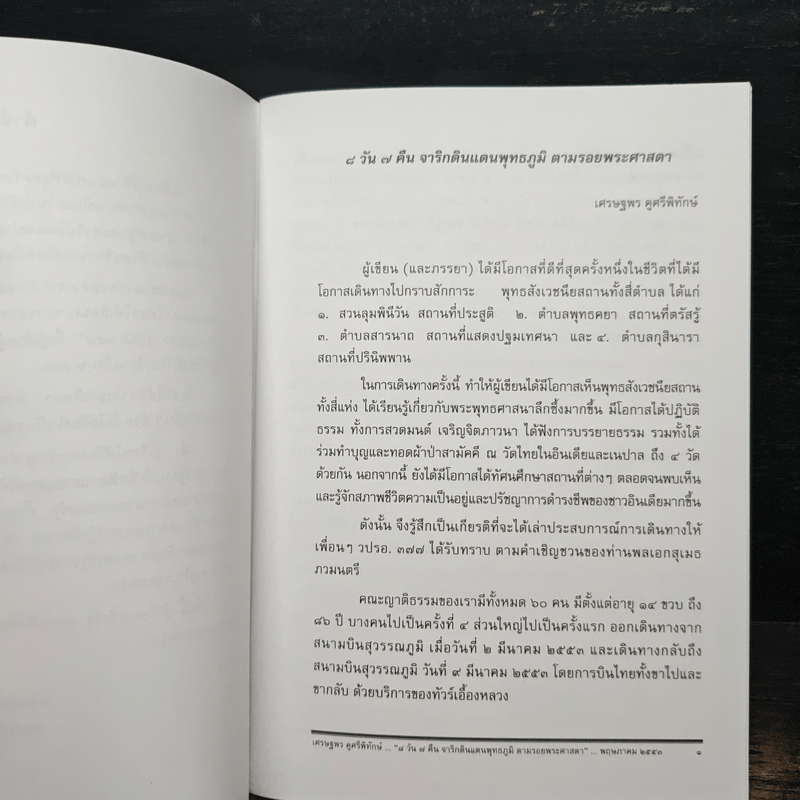 ๘ วัน ๗ คืน จาริกดินแดนพุทธภูมิ ตามรอยพระศาสดา
เศรษฐพร คูศรีพิทักษ์
ผู้เขียน (และภรรยา) ได้มีโอกาสที่ดีที่สุดครั้งหนึ่งในชีวิตที่ได้มี
โอกาสเดินทางไปกราบสักการะ พุทธสังเวชนียสถานทั้งสี่ตำบล ได้แก่
๑. สวนลุมพินีวัน สถานที่ประสูติ ๒. ตำบลพุทธคยา สถานที่ตรัสรู้
๓. ตำบลสารนาถ สถานที่แสดงปฐมเทศนา และ ๔. ตำบลกุสินารา
สถานที่ปรินิพพาน
ในการเดินทางครั้งนี้ ทำให้ผู้เขียนได้มีโอกาสเห็นพุทธสังเวชนียสถาน
ทั้งสี่แห่ง ได้เรียนรู้เกี่ยวกับพระพุทธศาสนาลึกซึ้งมากขึ้น มีโอกาสได้ปฏิบัติ
ธรรม ทั้งการสวดมนต์ เจริญจิตภาวนา ได้ฟังการบรรยายธรรม รวมทั้งได้
ร่วมทำบุญและทอดผ้าป่าสามัคคี ณ วัดไทยในอินเดียและเนปาล ถึง ๔ วัด
ด้วยกัน นอกจากนี้ ยังได้มีโอกาสได้ทัศนศึกษาสถานที่ต่างๆ ตลอดจนพบเห็น
และรู้จักสภาพชีวิตความเป็นอยู่และปรัชญาการดำรงชีพของชาวอินเดียมากขึ้น
ดังนั้น จึงรู้สึกเป็นเกียรติที่จะได้เล่าประสบการณ์การเดินทางให้
เพื่อนๆ วปรอ. ๓๗๗ ได้รับทราบ ตามคำเชิญชวนของท่านพลเอกสุเมธ
ภวมนตรี
คณะญาติธรรมของเรามีทั้งหมด ๖๐ คน มีตั้งแต่อายุ ๑๔ ขวบ ถึง
๘๖ ปี บางคนไปเป็นครั้งที่ ๔ ส่วนใหญ่ไปเป็นครั้งแรก ออกเดินทางจาก
สนามบินสุวรรณภูมิ เมื่อวันที่ ๒ มีนาคม ๒๕๕๓ และเดินทางกลับถึง
สนามบินสุวรรณภูมิ วันที่ ๙ มีนาคม ๒๕๕๓ โดยการบินไทยทั้งขาไปและ
ขากลับ ด้วยบริการของทัวร์เอื้องหลวง
เศรษฐพร คูศรีพิทักษ์ ... "๘ วัน ๗ คืน จาริกดินแดนพุทธภูมิ ตามรอยพระศาสดา" ... พฤษภาคม ๒๕๕๓ ๑